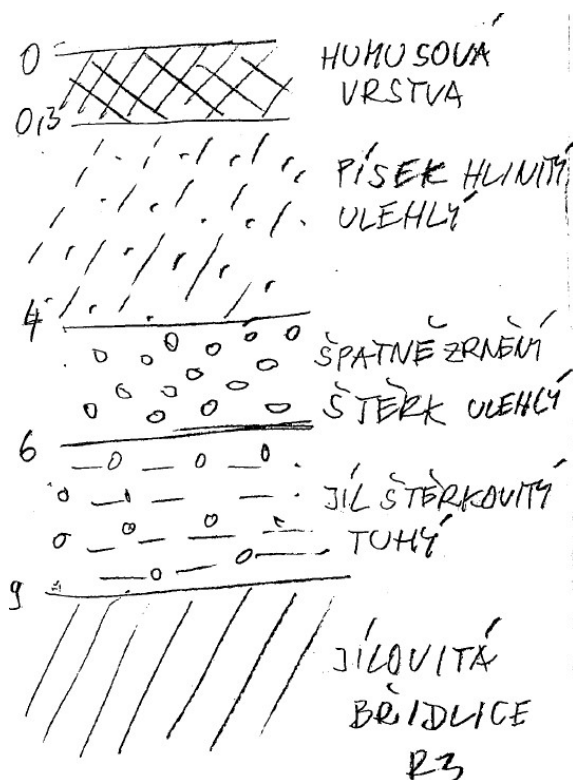 0
HUMUSOVÁ
VRSTVA
0,3
PÍSEK HLINITÝ
ULEHLÝ
4
ŠPATNĚ ZRNĚNÍ
ŠTĚRK ULEHLÝ
6
JÍL ŠTĚRKOVITÝ
TUHÝ
9
JÍLOVITÁ
BŘIDLICE
R3